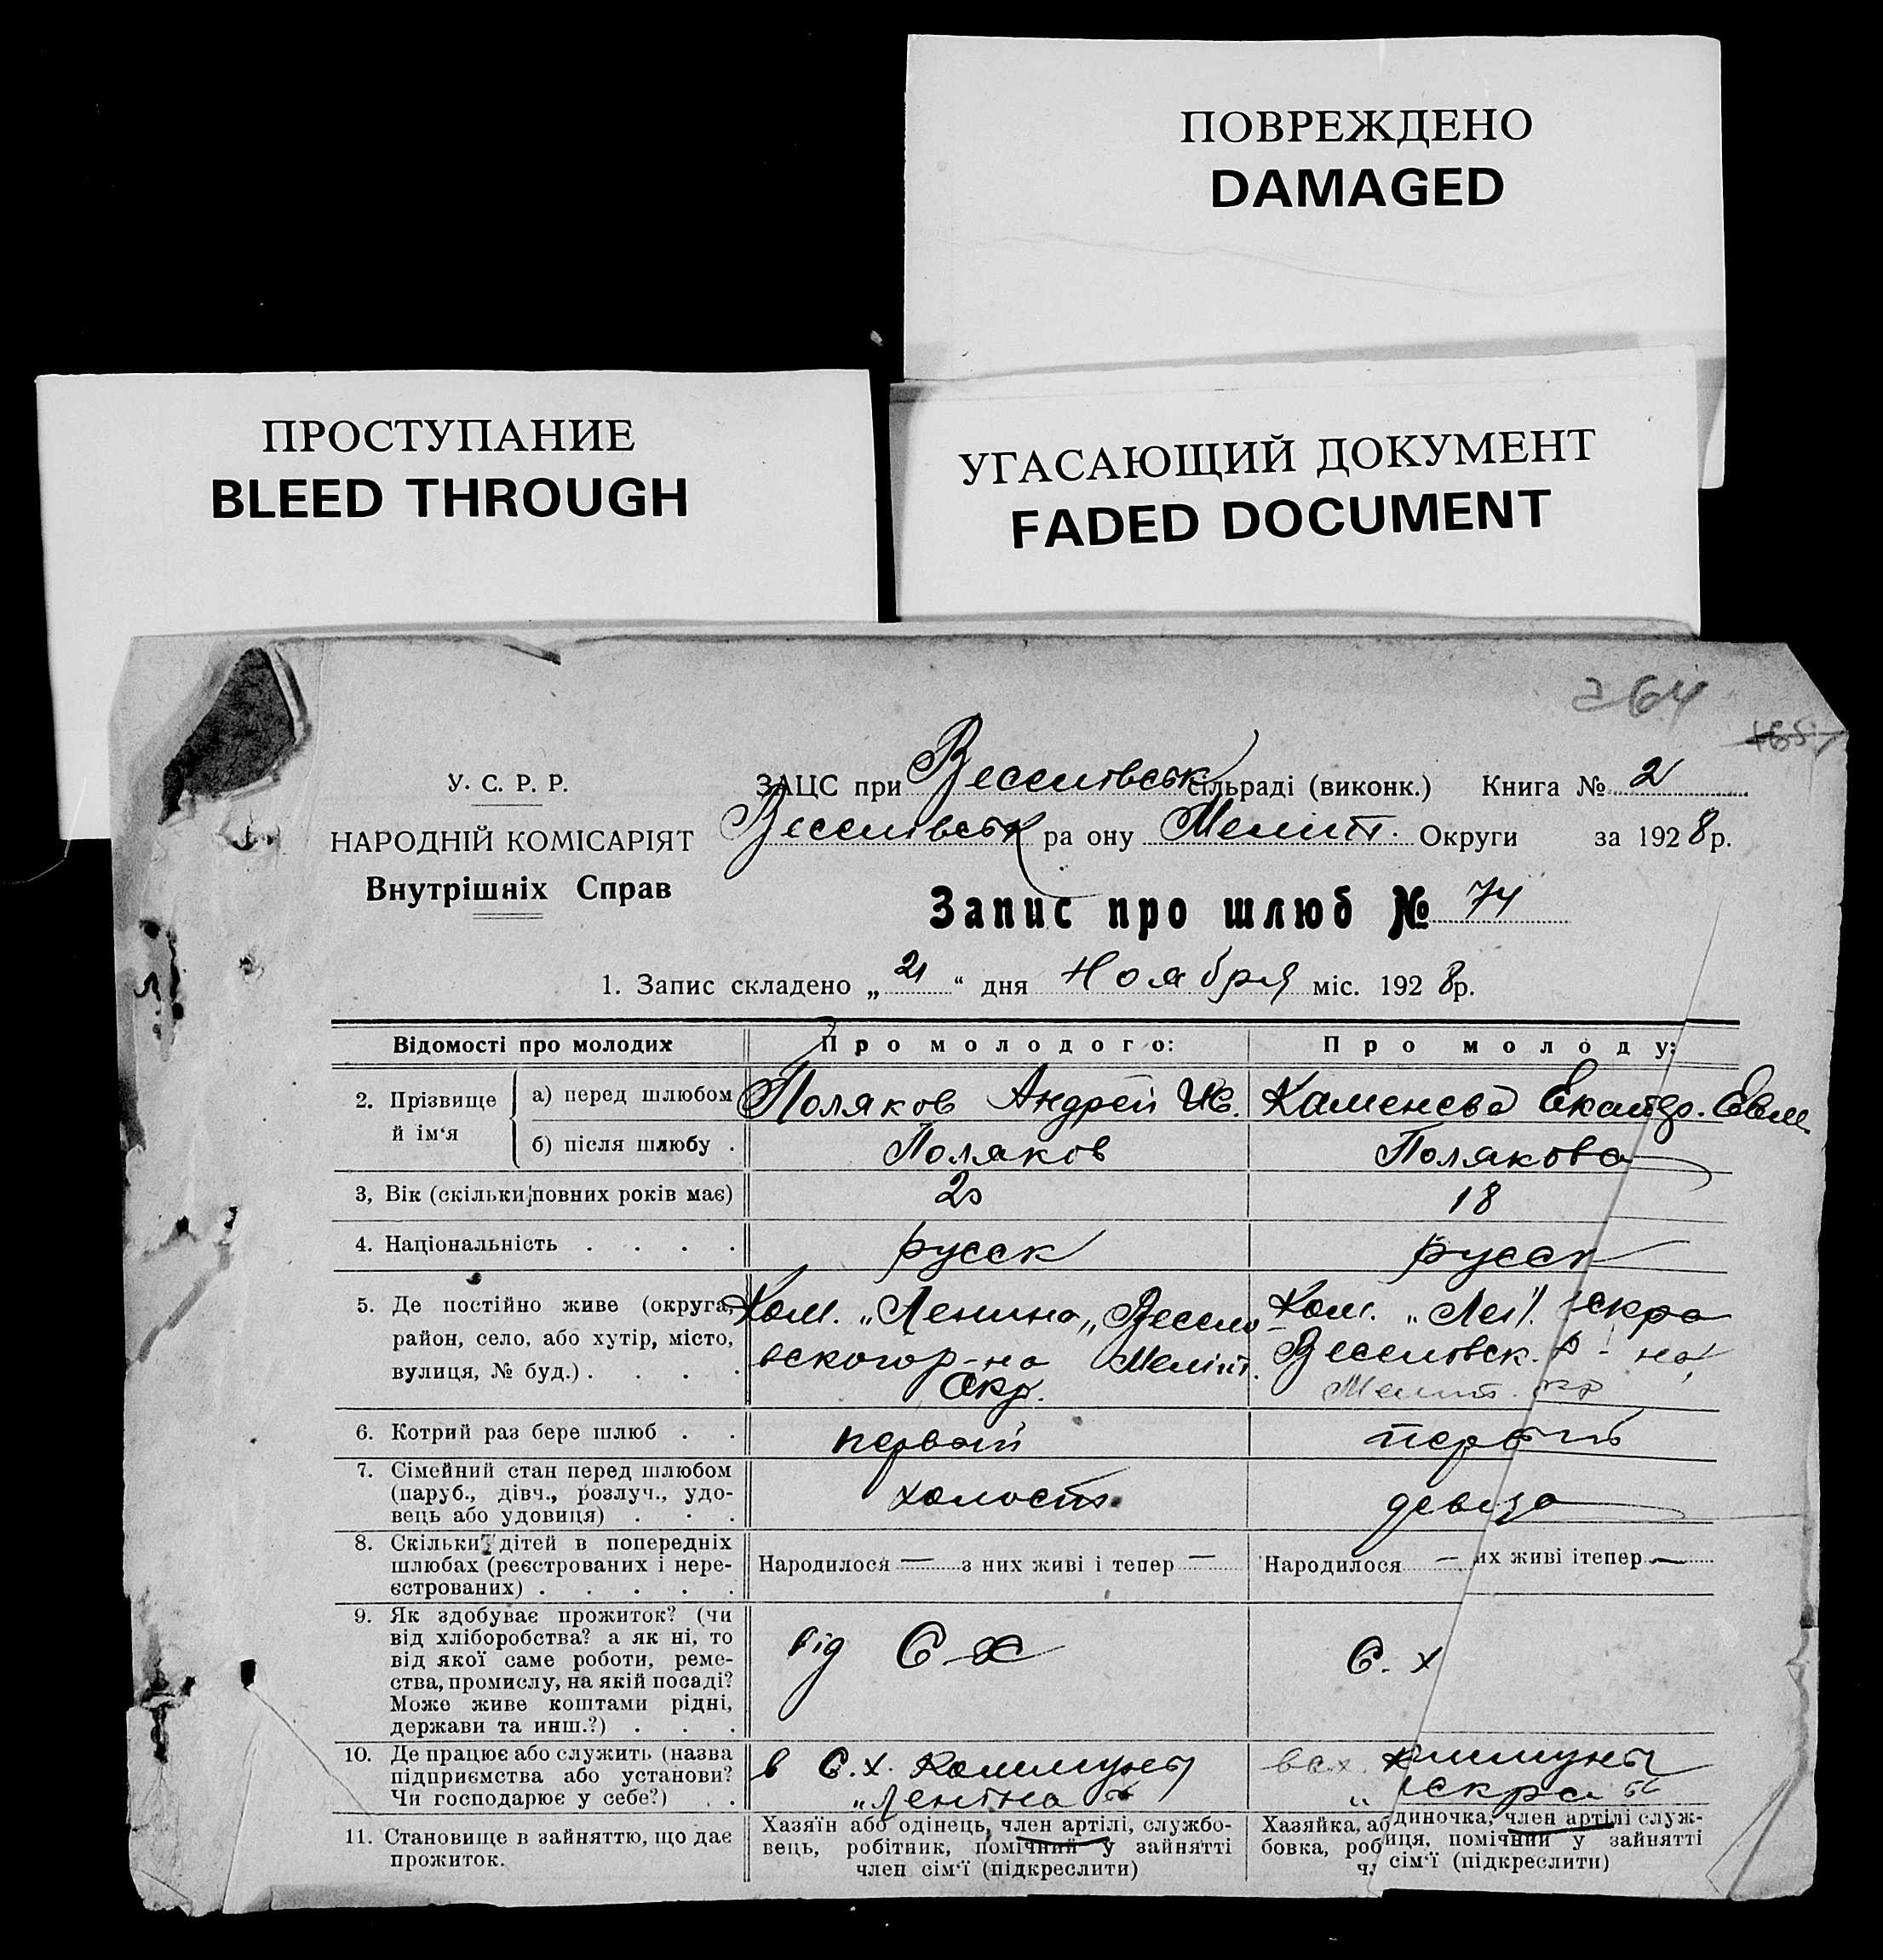 ПОВРЕЖДЕНО
DAMAGED
ПРОСТУПАНИЕ
BLEED THROUGH
УГАСАЮЩИЙ ДОКУМЕНТ
FADED DOCUMENT
264
У. С. Р. Р.
НАРОДНІЙ КОМІСАРІЯТ
Внутрішніх Справ
ЗАЦС при Веселівськ сільраді (виконк.) Книга № 2
Веселівськ ра ону Меліт. Округи за 1928 р.
Запис про шлюб № 74
1. Запис складено „21“ дня Ноября міс. 1928 р.
Відомості про молодих
Про молодого:
Про молоду:
2. Прізвище й ім‘я
а) перед шлюбом
Поляков Андрей Ив.
Каменева Екатер.
б) після шлюбу .
Поляков
Полякова
3, Вік (скільки повних років має)
20
18
4. Національність . . . .
русск
русск
5. Де постійно живе (округа,
район, село, або хутір, місто,
вулиця, № буд.) . . . .
Ком. „Ленина„ Весело
вского р-на Меліт.
Окр.
Ком. „ скра
Веселовск. р-на
Мелит. окр
6. Котрий раз бере шлюб . .
первый
первый
7. Сімейний стан перед шлюбом
(паруб., дівч., розлуч., удо-
вець або удовиця) . . .
холост
девица
8. Скільки дітей в попередніх
шлюбах (реєстрованих і нере-
єстрованих) . . . . .
Народилося — з них живі і тепер —
Народилося — их живі ітепер —
9. Як здобуває прожиток? (чи
від хліборобства? а як ні, то
від якої саме роботи, реме-
ства, промислу, на якій посаді?
Може живе коштами рідні,
держави та инш.?) . . .
від С-Х
С. х
10. Де працює або служить (назва
підприємства або установи?
Чи господарює у себе?) . .
в С. х. Коммуны
„Леніна“
в с.х. коммуны
„ скра“
11. Становище в зайняттю, що дає
прожиток.
Хазяїн або одінець, член артілі, службо-
вець, робітник, помічний у зайнятті
член сім‘ї (підкреслити)
Хазяйка, аб диночка, член артілі служ-
бовка, роб иця, помічний у зайнятті
ч сім‘ї (підкреслити)